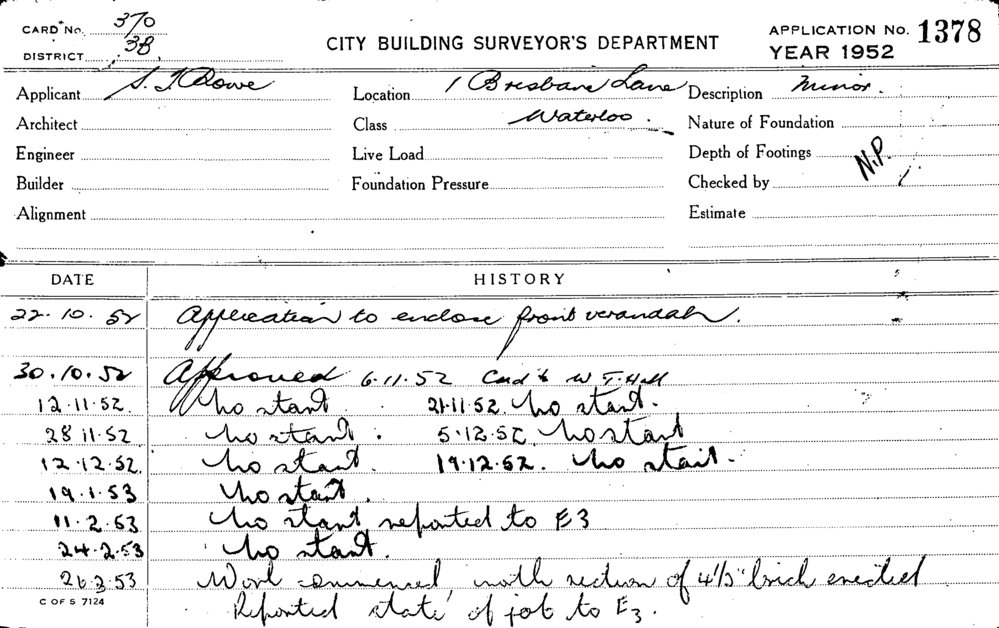 CARD No. 370
DISTRICT 3B
CITY BUILDING SURVEYOR'S DEPARTMENT
APPLICATION No. 1378
YEAR 1952
Applicant S. J. Rowe
Location 1 Brisbane Lane
Description Minor.
Architect
Class Waterloo.
Nature of Foundation
Engineer
Live Load
Depth of Footings N.P.
Builder
Foundation Pressure
Checked by
Alignment
Estimate
DATE HISTORY
22.10.52 Application to enclose front verandah.
30.10.52 Approved 6.11.52 Card to W T. Hall
12.11.52. No start 21.11.52. No start.
28 11.52 No start. 5.12.52 No start
12.12.52. No start. 19.12.52. No start.
19.1.53 No start.
11.2.53 No start reported to E3
24.2.53 No start.
26.2.53 Work commenced, north section of 4½" brick erected
C OF S 7124
Reported state of job to E3.